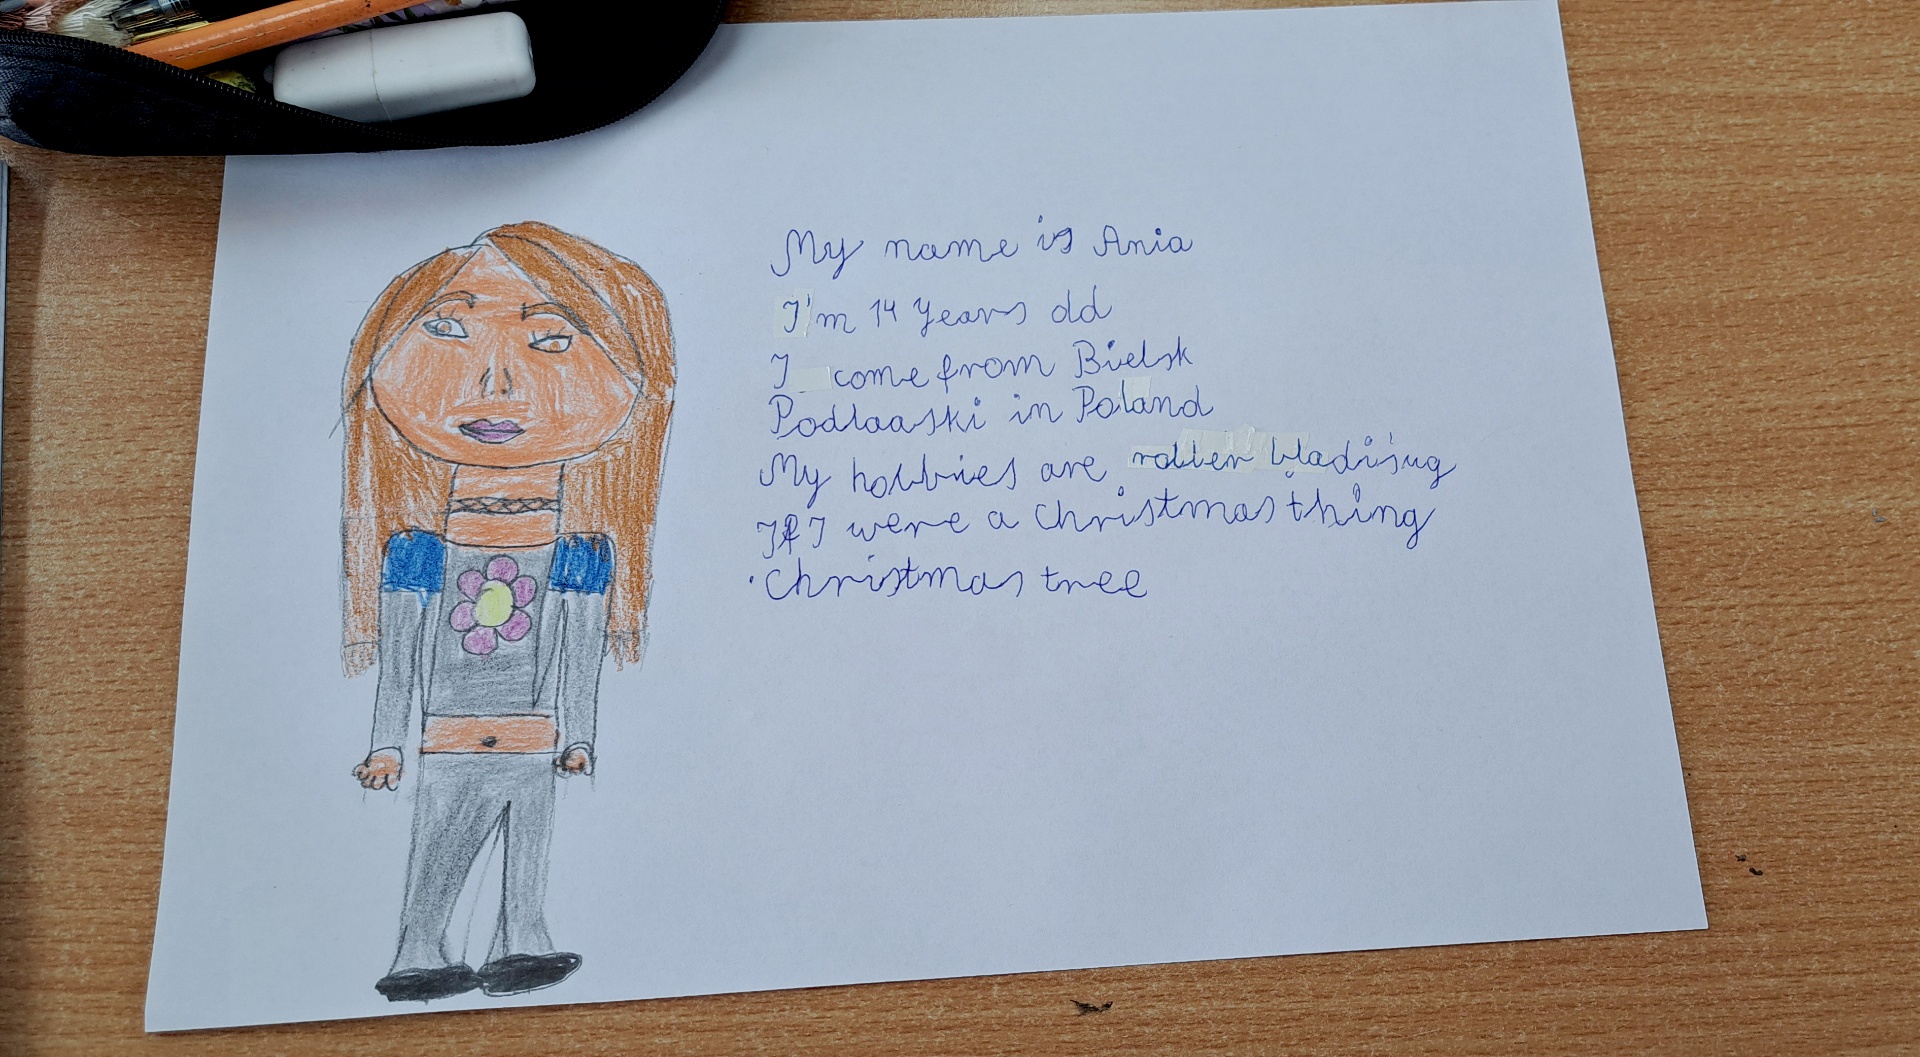 My name is Ania
I'm 14 years old
I come from Bielsk
Podlaaski in Poland
My hobbies are roller bladisug
If I were a Christmas thing
Christmas tree